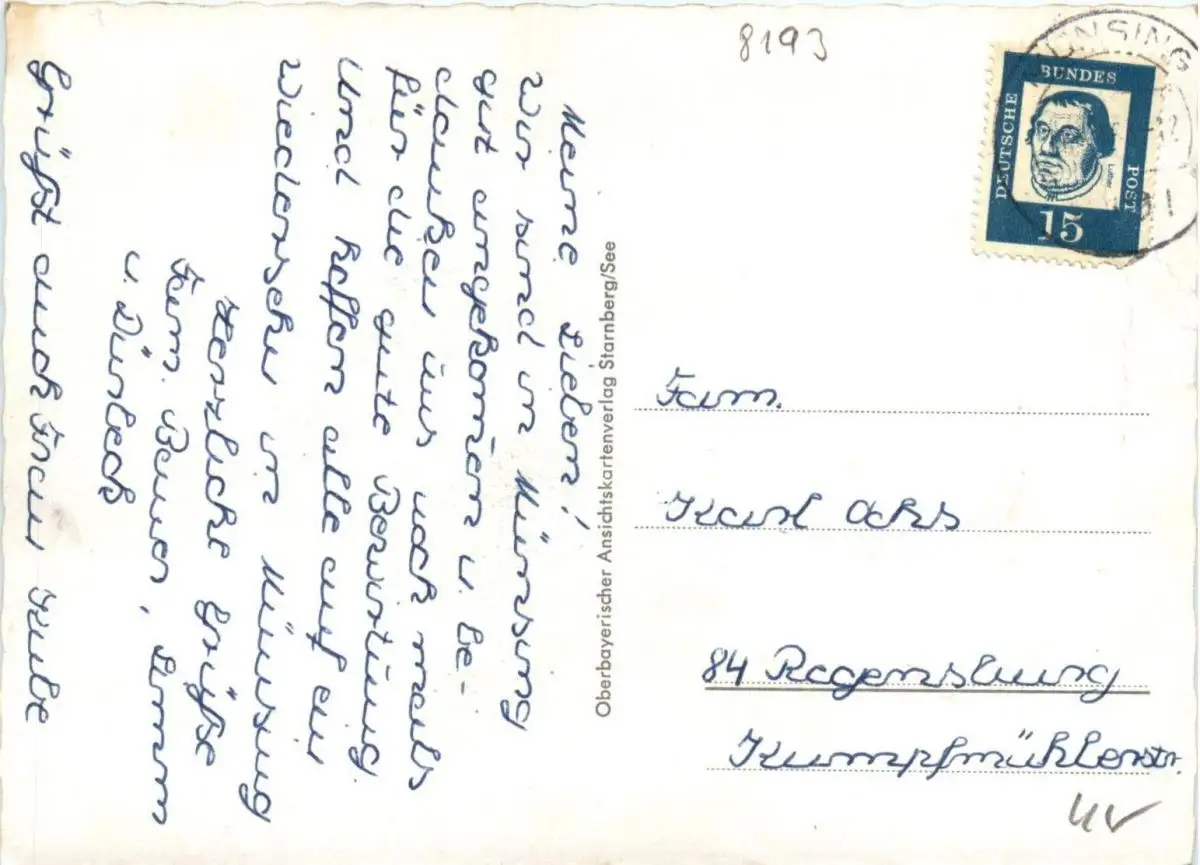 8193
DEUTSCHE BUNDES POST
15
Luther
Meine Lieben!
Wir sind in Münsing
gut angekomm̄en u. be-
danken uns noch mals
für die gute Bewirtung.
Und hoffen alle auf ein
Wiedersehen in Münsing
Herzliche Grüße
Fam. Bauer,
u. Dürbeck
Grüßt auch Frau Kulbe
Oberbayerischer Ansichtskartenverlag Starnberg/See
Fam.
Karl Ochs
84 Regensburg
Kumpfmühlerstr.